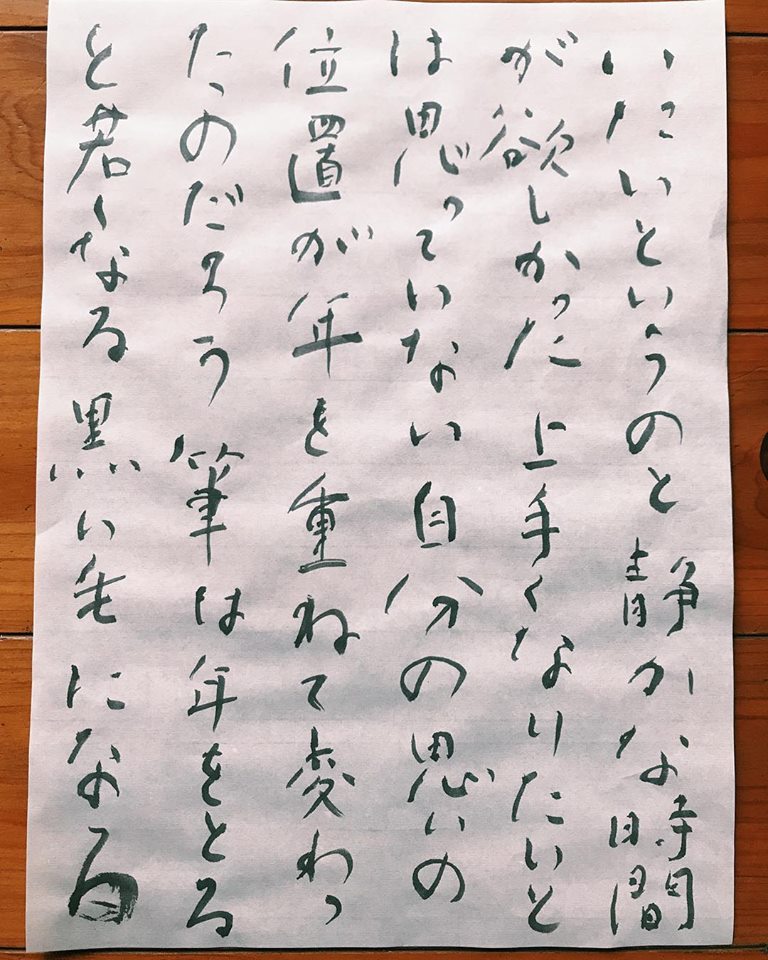 いたいというのと静かな時間
が欲しかった上手くなりたいと
は思っていない自分の思いの
位置が年を重ねて変わっ
たのだろう筆は年をとる
と若くなる黒い毛になる